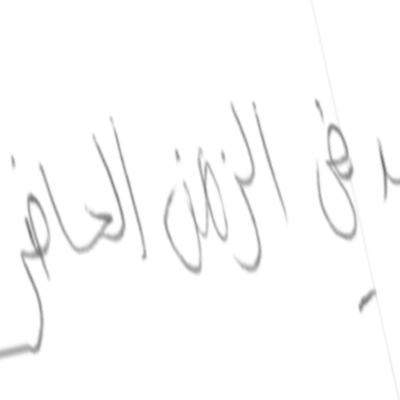 في الزمن الحاضر